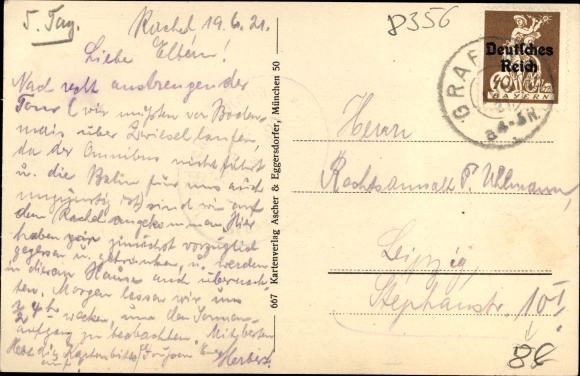 5. Tag.
Rachel, 19.6.21.
Liebe Eltern!
Nach recht anstrengender
Tour (wir mußten von Boden-
mais über Zwiesel laufen,
da der Omnibus nicht fährt
u. die Bahn für uns auch
ungünstig ist) sind wir auf
dem Rachel angekommen. Hier
haben wir zunächst vorzüglich
gegessen u. getrunken, u. werden
in diesem Hause auch übernach-
ten. Morgen lassen wir uns
wecken, um den Sonnen-
aufgang zu beobachten. Mit besten
Grüßen Euer
Hebt bitte Kartenbilder auf!
Herbert.
667 Kartenverlag Ascher & Eggersdorfer, München 50
8356
Deutsches
Reich
40
BAYERN
GRAF
8 4-5 N.
Herrn
Rechtsanwalt P. Uhlmann,
Leipzig,
Stephanstr. 10 I
86